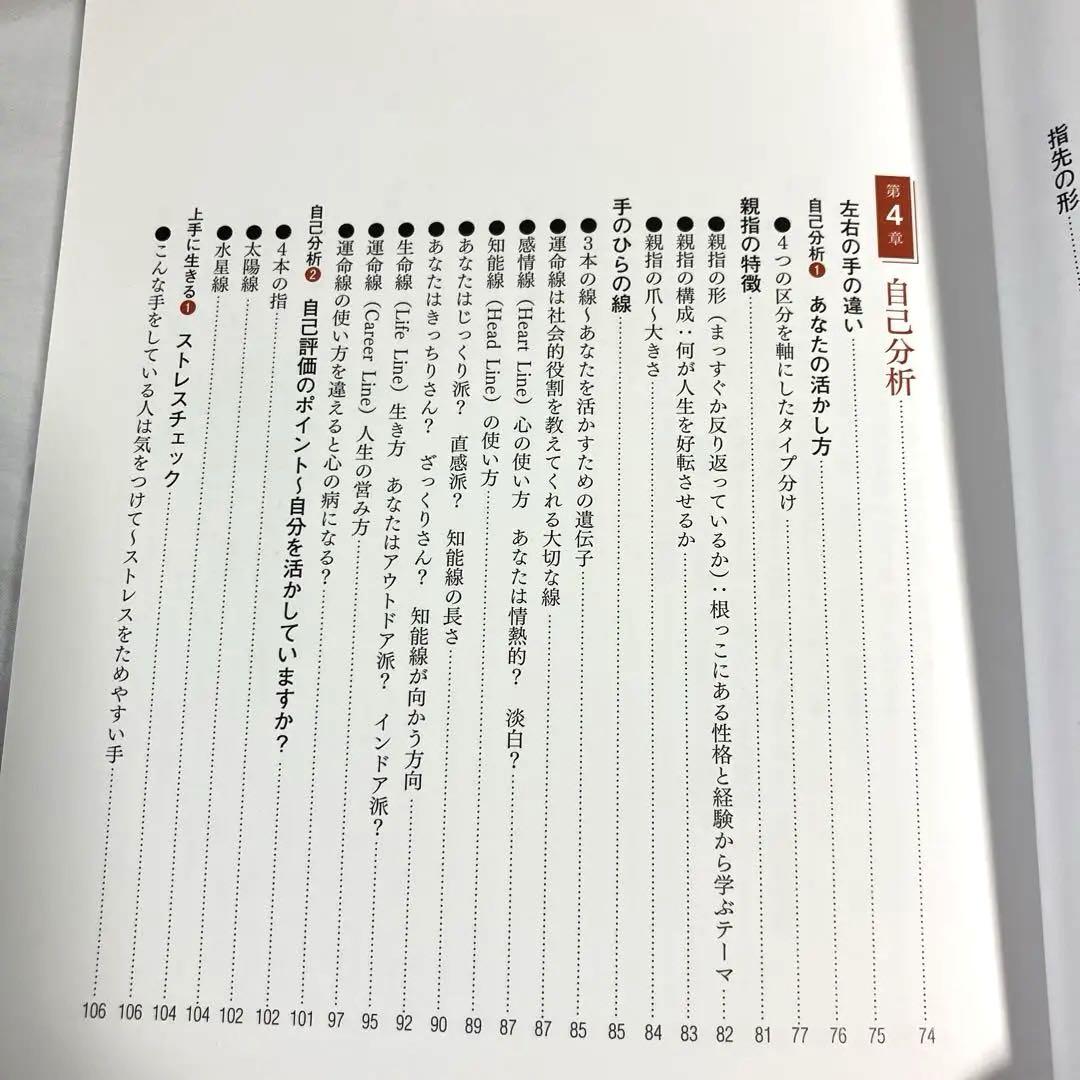 指先の形……
第4章 自己分析……74
左右の手の違い……75
自己分析❶ あなたの活かし方……76
●4つの区分を軸にしたタイプ分け……77
親指の特徴……81
●親指の形（まっすぐか反り返っているか）：根っこにある性格と経験から学ぶテーマ……82
●親指の構成：何が人生を好転させるか……83
●親指の爪〜大きさ……84
手のひらの線……85
●3本の線〜あなたを活かすための遺伝子……85
●運命線は社会的役割を教えてくれる大切な線……87
●感情線（Heart Line）心の使い方　あなたは情熱的？　淡白？……87
●知能線（Head Line）の使い方……89
●あなたはじっくり派？　直感派？　知能線の長さ……90
●あなたはきっちりさん？　ざっくりさん？　知能線が向かう方向……92
●生命線（Life Line）生き方　あなたはアウトドア派？　インドア派？……95
●運命線（Career Line）人生の営み方……97
●運命線の使い方を違えると心の病になる？……101
自己分析❷ 自己評価のポイント〜自分を活かしていますか？……102
●4本の指……102
●太陽線……104
●水星線……104
上手に生きる❶ ストレスチェック……106
●こんな手をしている人は気をつけて〜ストレスをためやすい手……106